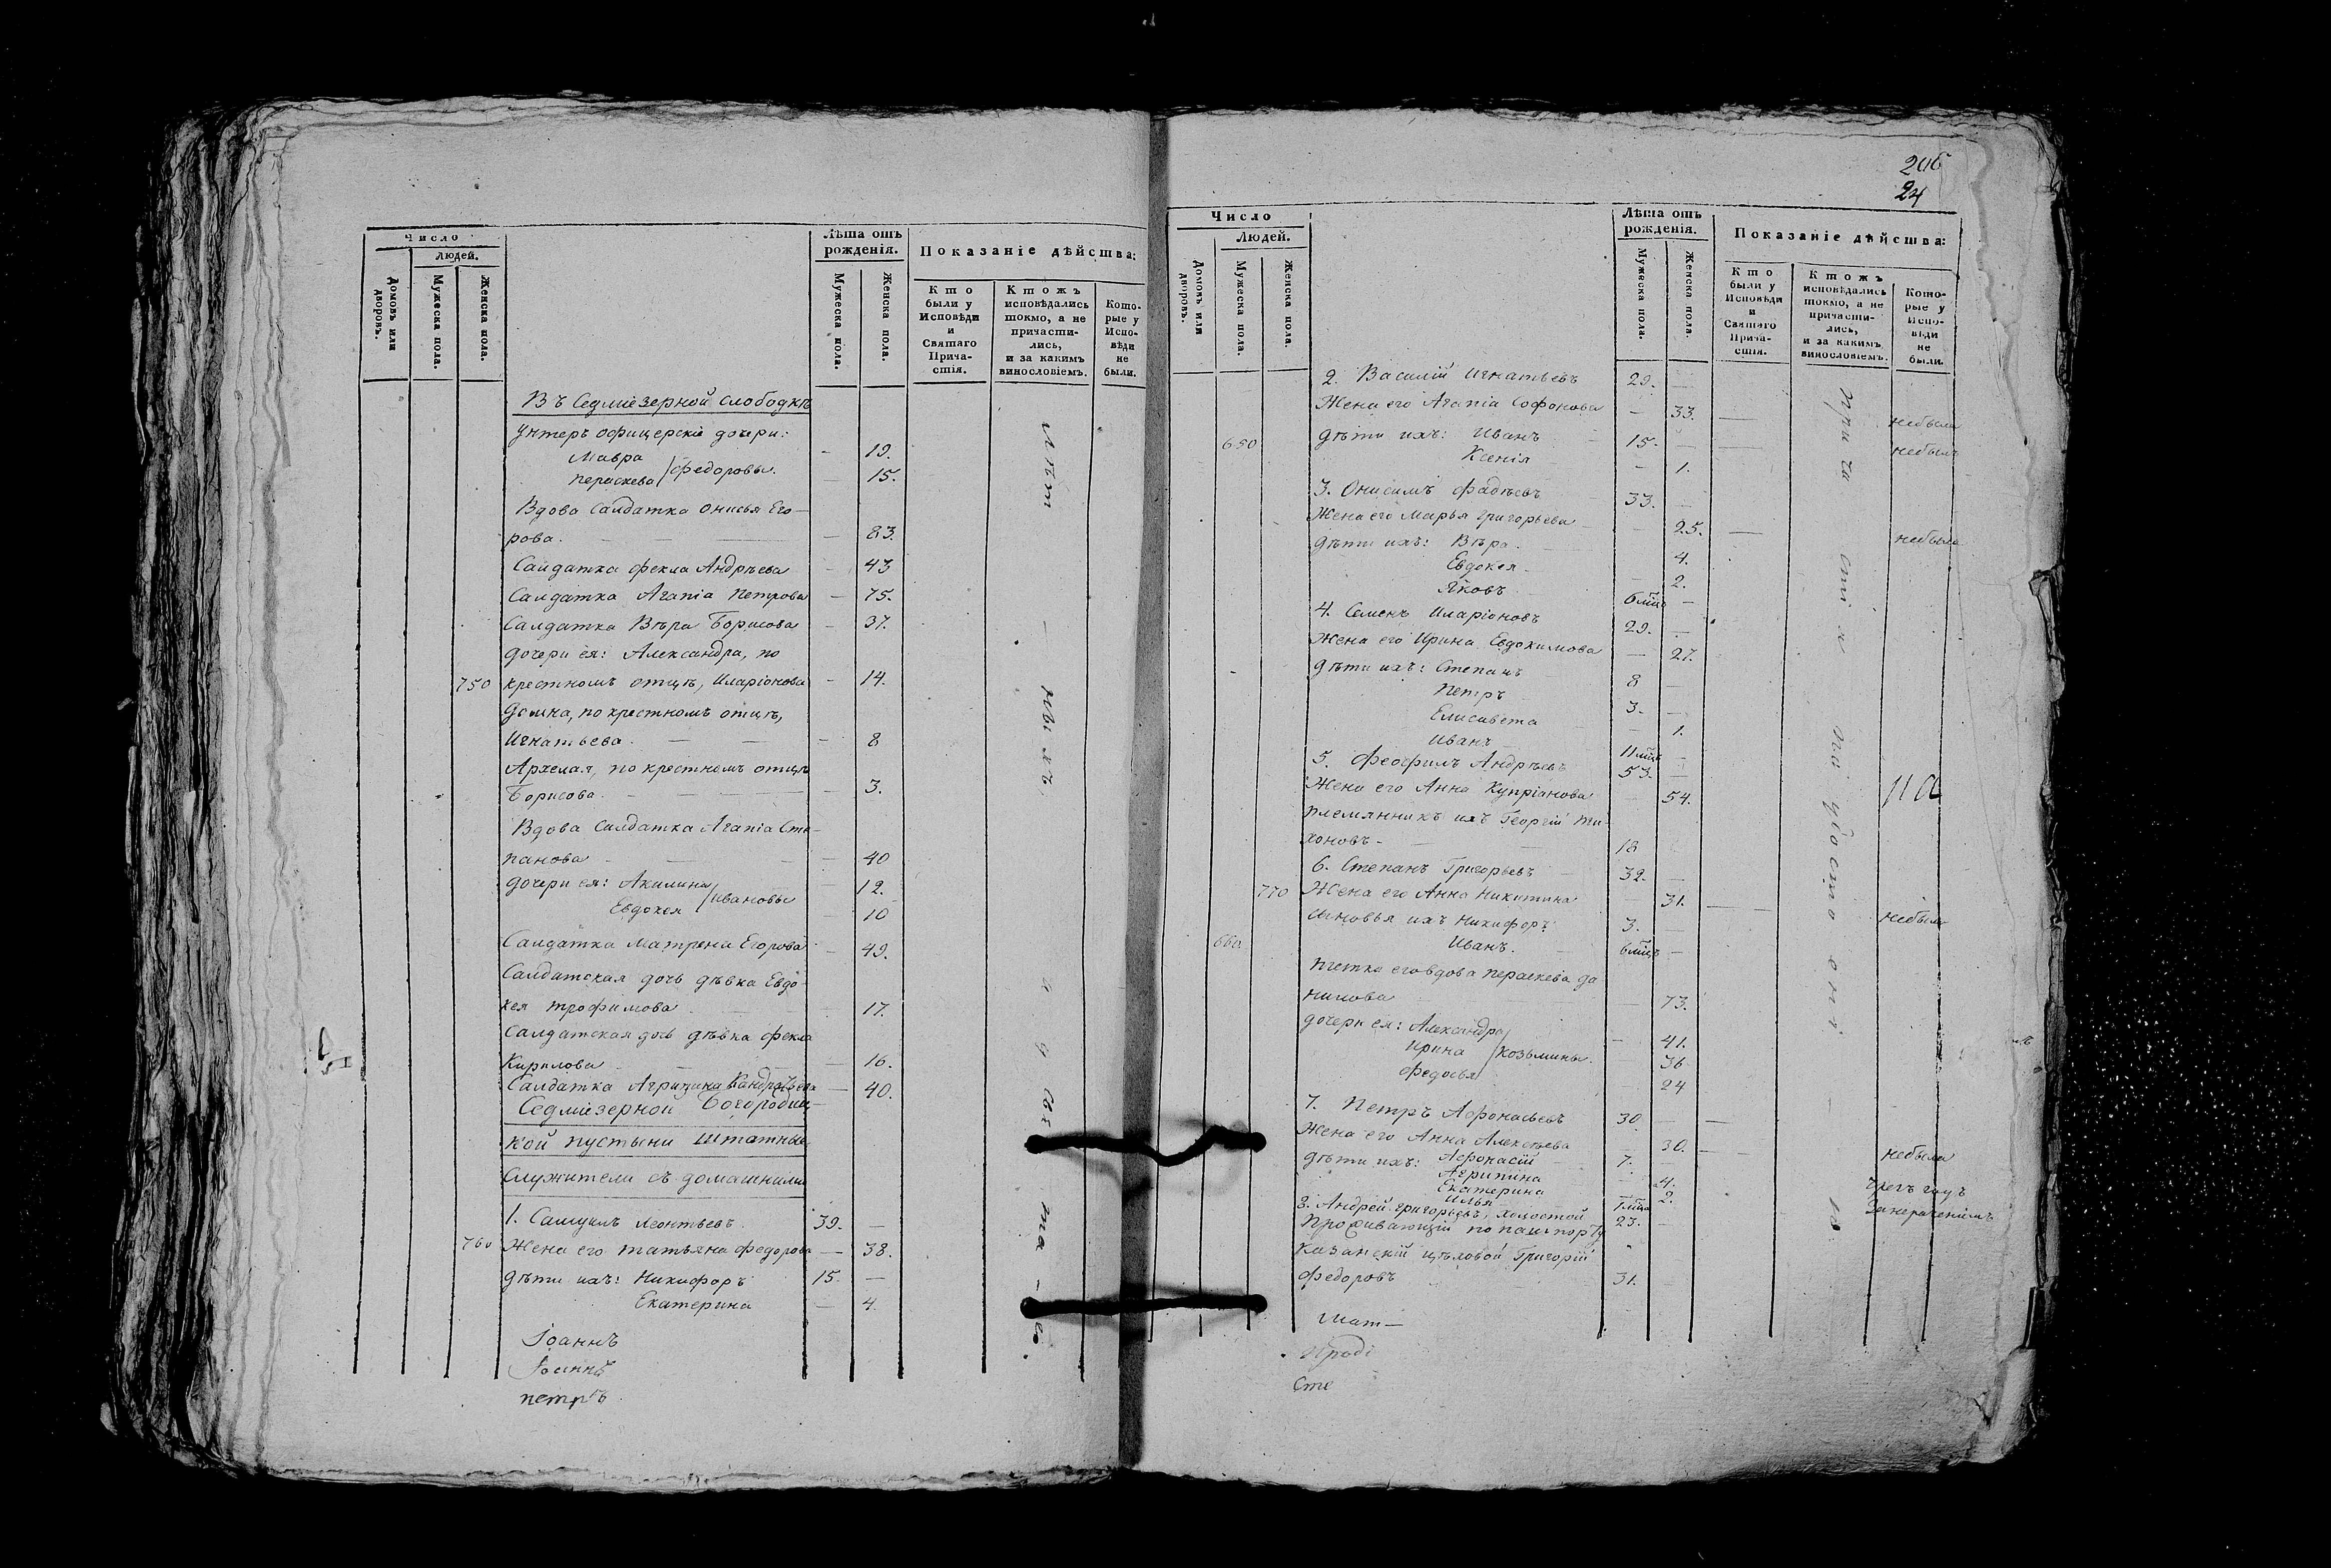 Число
Людей.
Домовъ или дворовъ.
Мужеска пола.
Женска пола.
Лѣта отъ рожденія.
Мужеска пола.
Женска пола.
Показаніе дѣйства:
Кто были у Исповѣди и Святаго Причастія.
Ктожъ исповѣдались токмо, а не причастились, и за какимъ винословіемъ.
Которые у Исповѣди не были.
Въ Седміезерной слободкѣ
Унтеръ офицерскіе дочери:
Мавра – 19.
Параскева / Федоровы. – 15.
Вдова Салдатка Онисья Его-
рова. – 83.
Салдатка Фекла Андрѣева – 43
Салдатка Агапіа Петрова – 75.
Салдатка Вѣра Борисова – 37.
Дочери ея: Александра, по
750 крестномъ отцѣ, Иларіонова – 14.
Домна, по крестномъ отцѣ,
Игнатьева. – 8
по крестномъ отцѣ
Борисова – 3.
Вдова Салдатка Агапіа Сте-
панова – 40
Дочери ея: Акилина 12.
Евдокея / Ивановы 10
Салдатка Матрена Егорова – 49.
Салдатская дочь дѣвка Евдо-
кея Трофимова 17.
Салдатская дочь дѣвка Фекла
Кирилова – 16.
Салдатка Агрипина – 40.
Седміезерной Богородиц-
кой пустыни штатные
Служители съ домашними
1. Самуилъ Леонтьевъ. 39. –
760 Жена его Татьяна Федорова – 38.
Дѣти ихъ: Никифоръ 15. –
Екатерина – 4.
Іоаннъ
Іоаннъ
Петръ
24
Число
Людей.
Домовъ или дворовъ.
Мужеска пола.
Женска пола.
Лѣта отъ рожденія.
Мужеска пола.
Женска пола.
Показаніе дѣйства:
Кто были у Исповѣди и Святаго Причастія.
Ктожъ исповѣдались токмо, а не причастились, и за какимъ винословіемъ.
Которые у Исповѣди не были.
2. Василій Игнатьевъ 29. –
Жена его Агапіа Софонова – 33. – небыла
650 Дѣти ихъ: Иванъ 15. – – небылъ
Ксенія – 1.
3. Онисимъ Фадѣевъ 33. –
Жена его Марья Григорьева – 25. – небыла
Дѣти ихъ: Вѣра 4.
Евдокея – 2.
Яковъ 6 мцъ –
4. Семенъ Иларіоновъ 29. –
Жена его Ирина Евдокимова – 27.
Дѣти ихъ: Степанъ 8 –
Петръ 3. –
Елисавета – 1.
Иванъ 11 мцъ –
5. Феофилъ Андрѣевъ 53. –
Жена его Анна Купріанова – 54.
Племянникъ ихъ Георгій Ти-
хоновъ – 18
6. Степанъ Григорьевъ 32. –
770 Жена его Анна Никитина – 31. – небыла
Сыновья ихъ Никифоръ 3. –
660 Иванъ. 6 мцъ –
Тетка его вдова Параскева Да
нилова – 73.
Дочери ея: Александра – 41.
Ирина / Козьмины. 36
Федосья 24
7. Петръ Афонасьевъ 30. – –
Жена его Анна Алексѣева – 30. – небыла
Дѣти ихъ: Афонасій 7. –
Агрипина – 4.
Екатерина – 2.
Илья 1 мцъ
8. Андрей Григорьевъ, холостой 23. –
Проживающій по пашпорту
Казанскій цѣховой Григорій
Федоровъ 31. –
Шат–
Проді
Сте